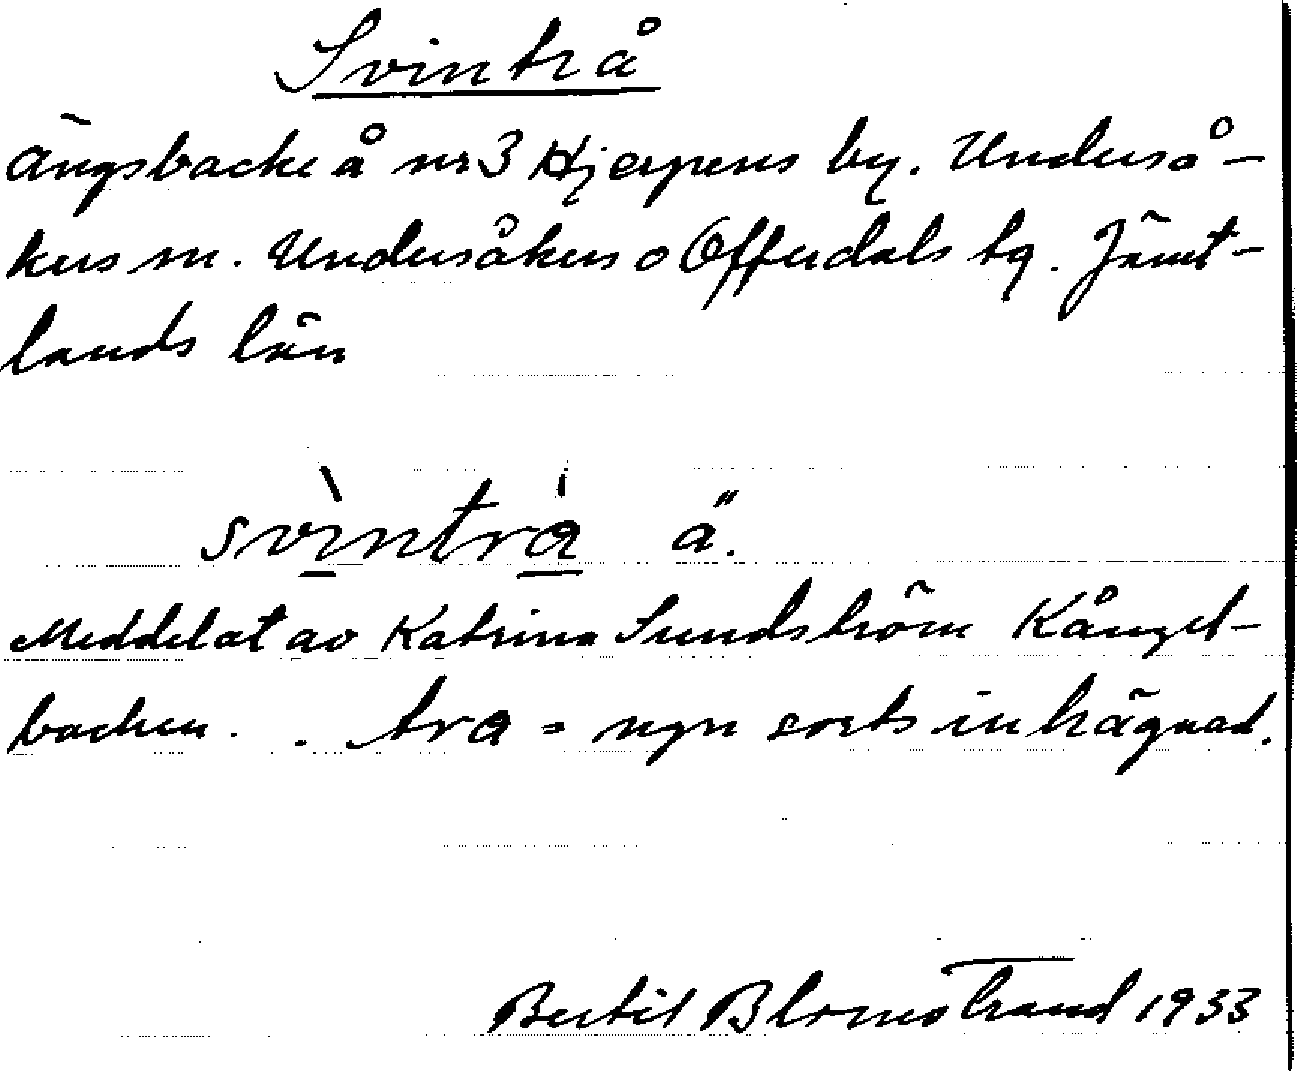 Svintrå
Ängsbacke å nr 3 Hjerpens by. Underså-
kers sn. Undersåkers o Offerdals tg. Jämt-
lands län
svìntrá ä".
Meddelat av Katrina Sundström Kångel-
backen. . tra = ngn sorts inhägnad.
Bertil Blomstrand 1933